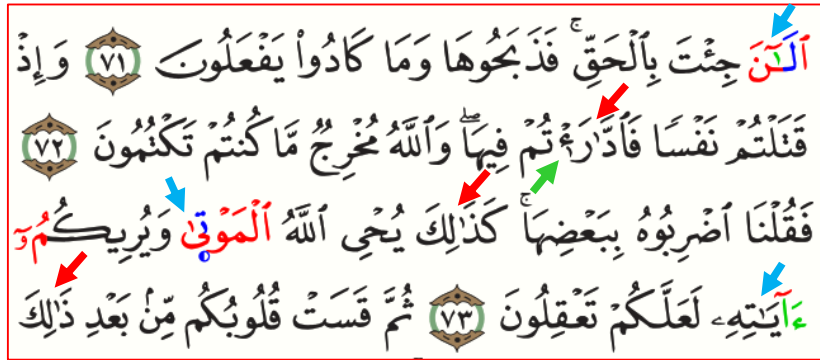 ٱلَـٰٓنَ جِئۡتَ بِٱلۡحَقِّۚ فَذَبَحُوهَا وَمَا كَادُواْ يَفۡعَلُونَ ٧١ وَإِذۡ
قَتَلۡتُمۡ نَفۡسٗا فَٱدَّٰرَٰٔۡتُمۡ فِيهَاۖ وَٱللَّهُ مُخۡرِجٞ مَّا كُنتُمۡ تَكۡتُمُونَ ٧٢
فَقُلۡنَا ٱضۡرِبُوهُ بِبَعۡضِهَاۚ كَذَٰلِكَ يُحۡيِ ٱللَّهُ ٱلۡمَوۡتٜيٰ وَيُرِيكُمُۥٓ
ءَآيَٰتِهِۦ لَعَلَّكُمۡ تَعۡقِلُونَ ٧٣ ثُمَّ قَسَتۡ قُلُوبُكُم مِّنۢ بَعۡدِ ذَٰلِكَ